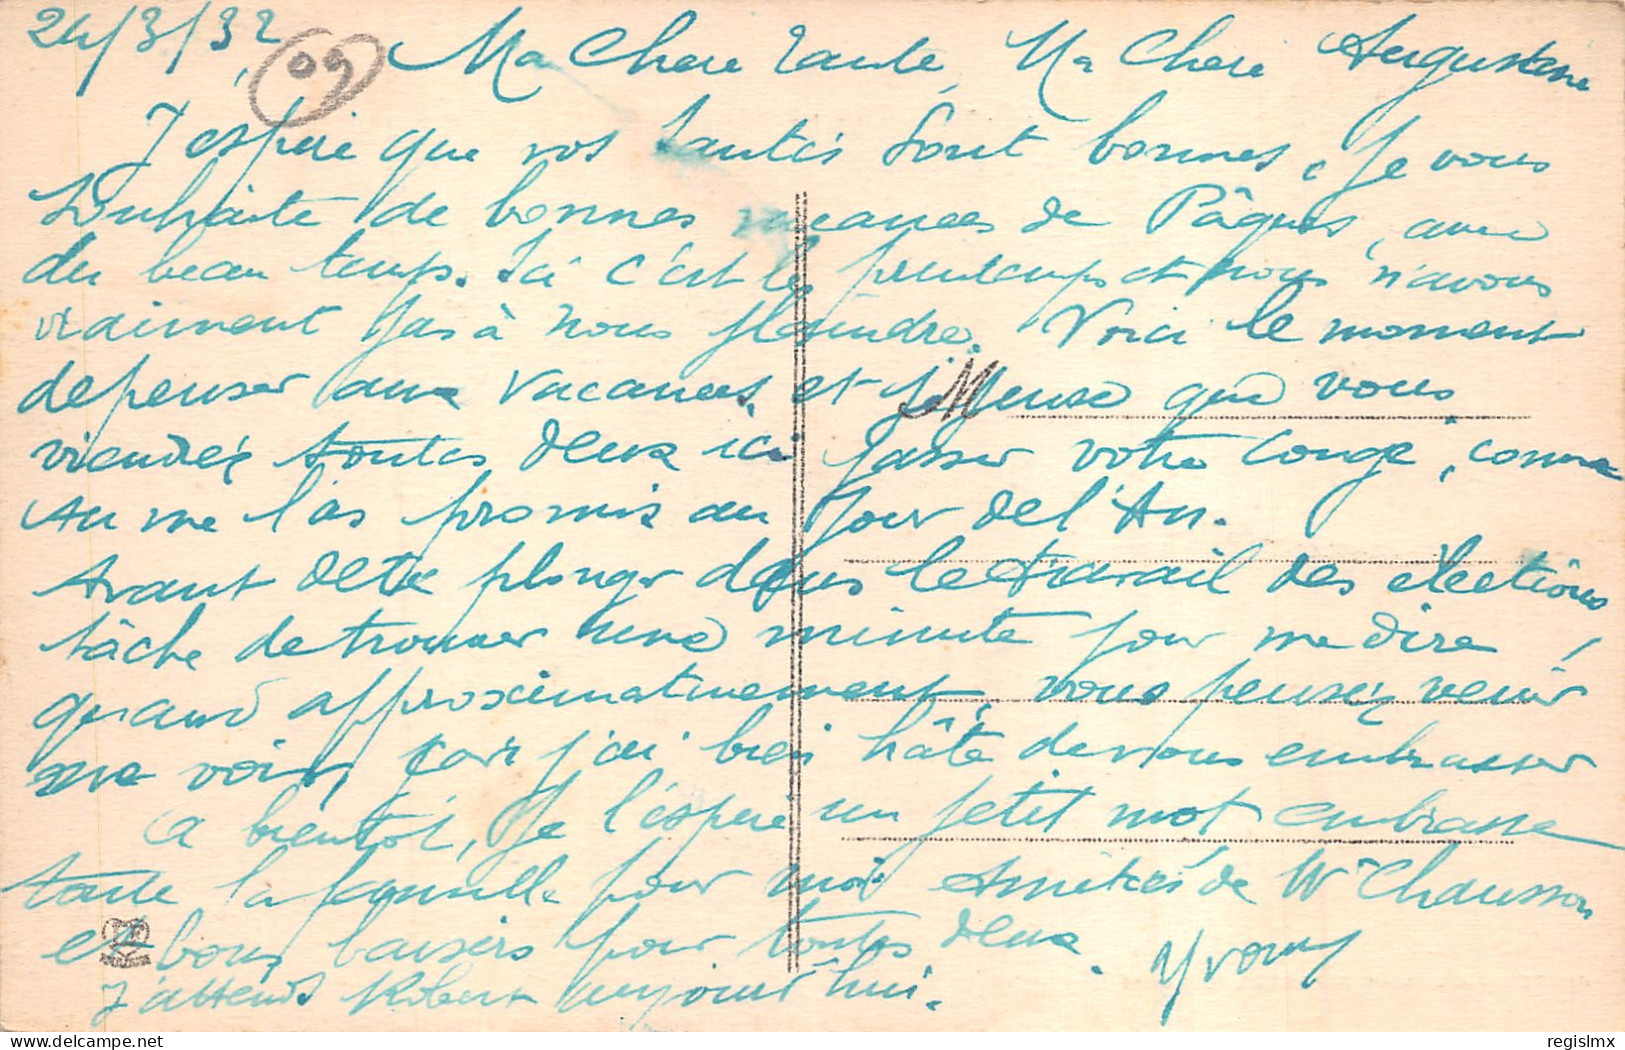 24/3/32
09
Ma Chere tante, Ma Chere Augustine
J'espère que vos santés sont bonnes, je vous
souhaite de bonnes vacances de Pâques, avec
du beau temps. Ici c'est le printemps et nous n'avons
vraiment pas à nous plaindre. Voici le moment
de penser aux vacances, et je pense que vous
viendrez toutes deux ici passer votre congé, comme
tu me l'as promis au Jour de l'An.
Avant de te plonger dans le travail des élections
tâche de trouver une minute pour me dire !
quand approximativement, vous pensez venir
me voir, car j'ai bien hâte de vous embrasser
A bientôt, je l'espère un petit mot embrasse
toute la famille pour moi Amitiés de Mr Chausson
et bons baisers pour toutes deux. Yvonne
J'attends Robert aujourd'hui.
regislmx